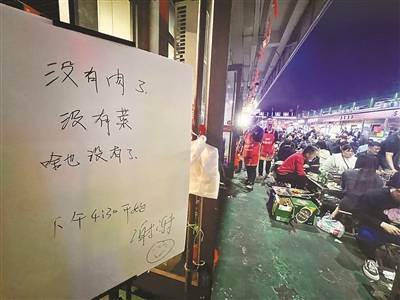 没有肉了
没有菜
啥也没有了
下午4:30开始
谢谢